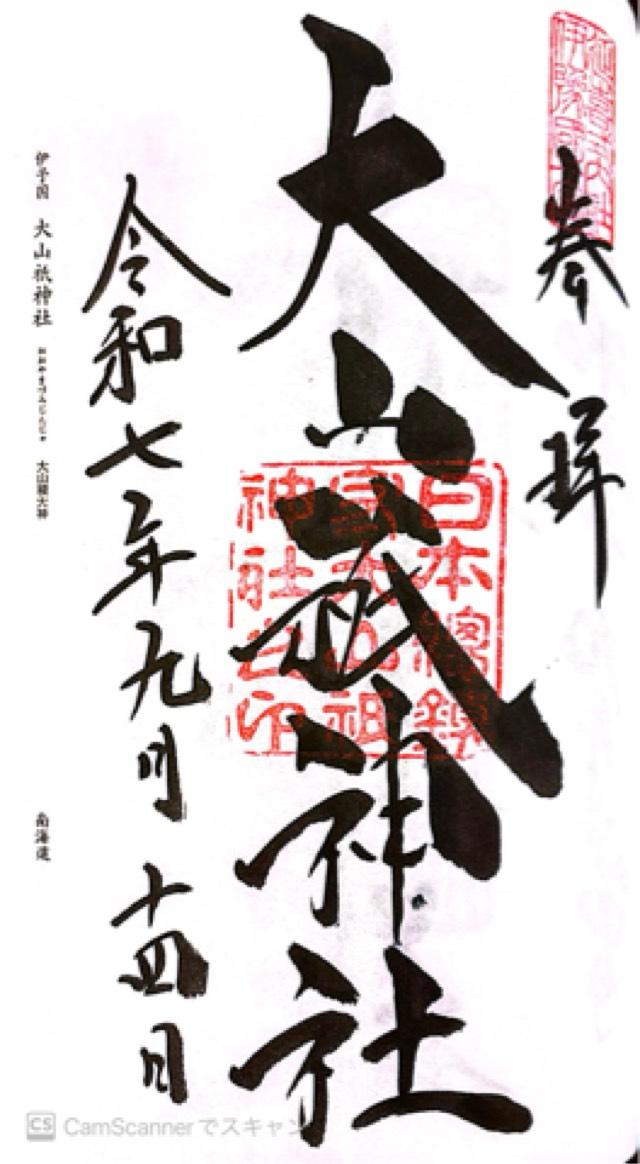 奉拝
大山祇神社
日本總鎮
守大山祇
神社之印
令和七年九月十四日
伊予国 大山祇神社 おおやまづみじんじゃ 大山積大神 南海道
CS CamScannerでスキャン